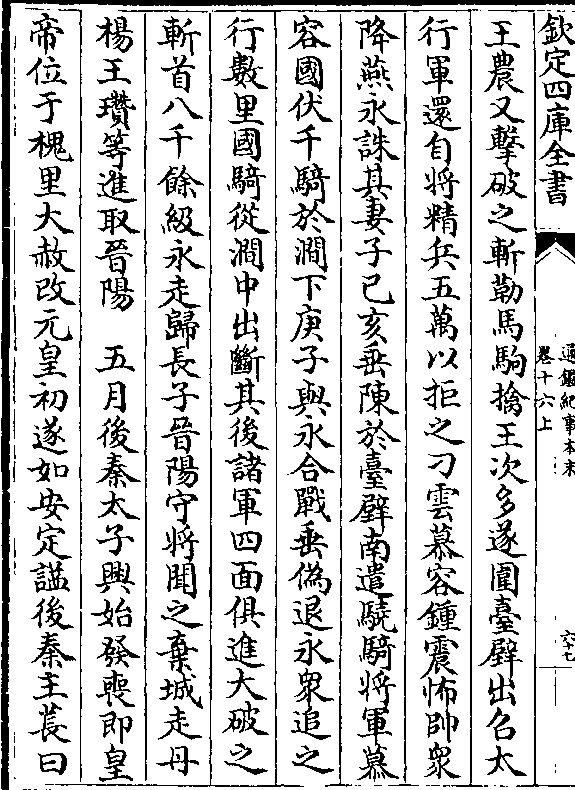 欽定四庫全書
通鑑紀事本末
卷十六上
六十七
王農又擊破之斬勒馬駒擒王次多遂圍臺壁出名太
行軍還自将精兵五萬以拒之刁雲慕容鍾震怖帥衆
降燕永誅其妻子己亥垂陳於臺壁南遣驍騎将軍慕
容國伏千騎於澗下庚子與永合戰垂偽退永衆追之
行數里國騎從澗中出斷其後諸軍四面俱進大破之
斬首八千餘級永走歸長子晉陽守将聞之棄城走丹
楊王瓚等進取晉陽　五月後秦太子興始發喪即皇
帝位于槐里大赦改元皇初遂如安定諡後秦主萇曰